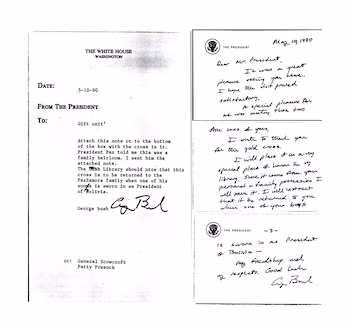 THE WHITE HOUSE
WASHINGTON
DATE:
5-10-90
FROM THE PRESIDENT
TO:
Gift unit'
Attach this note ot to the bottom
of the box with the cross in it.
President Paz told me this was a
family heirloom. I sent him the
attached note.
The Library should note that this
cross is to be returned to the
family when one of his
is sworn in as President
of Bolivia.
George bush
cc: General Scowcroft
Patty Presock
THE PRESIDENT
May 10, 1990
Dear Mr. President,
It was a great
pleasure seeing you here.
I hope the visit proved
satisfactory.
A special pleasure for
me was meeting those two
fine sons of yours.
I write to thank you
for the gold cross.
I will place it in a very
special place of honor in my
library. Since it comes from your
personal family possession I
will see it. I will instruct
that it be returned to you
when one of your boys
THE PRESIDENT
-3-
is sworn in as President
of Bolivia.
My friendship and
my respects. Good luck